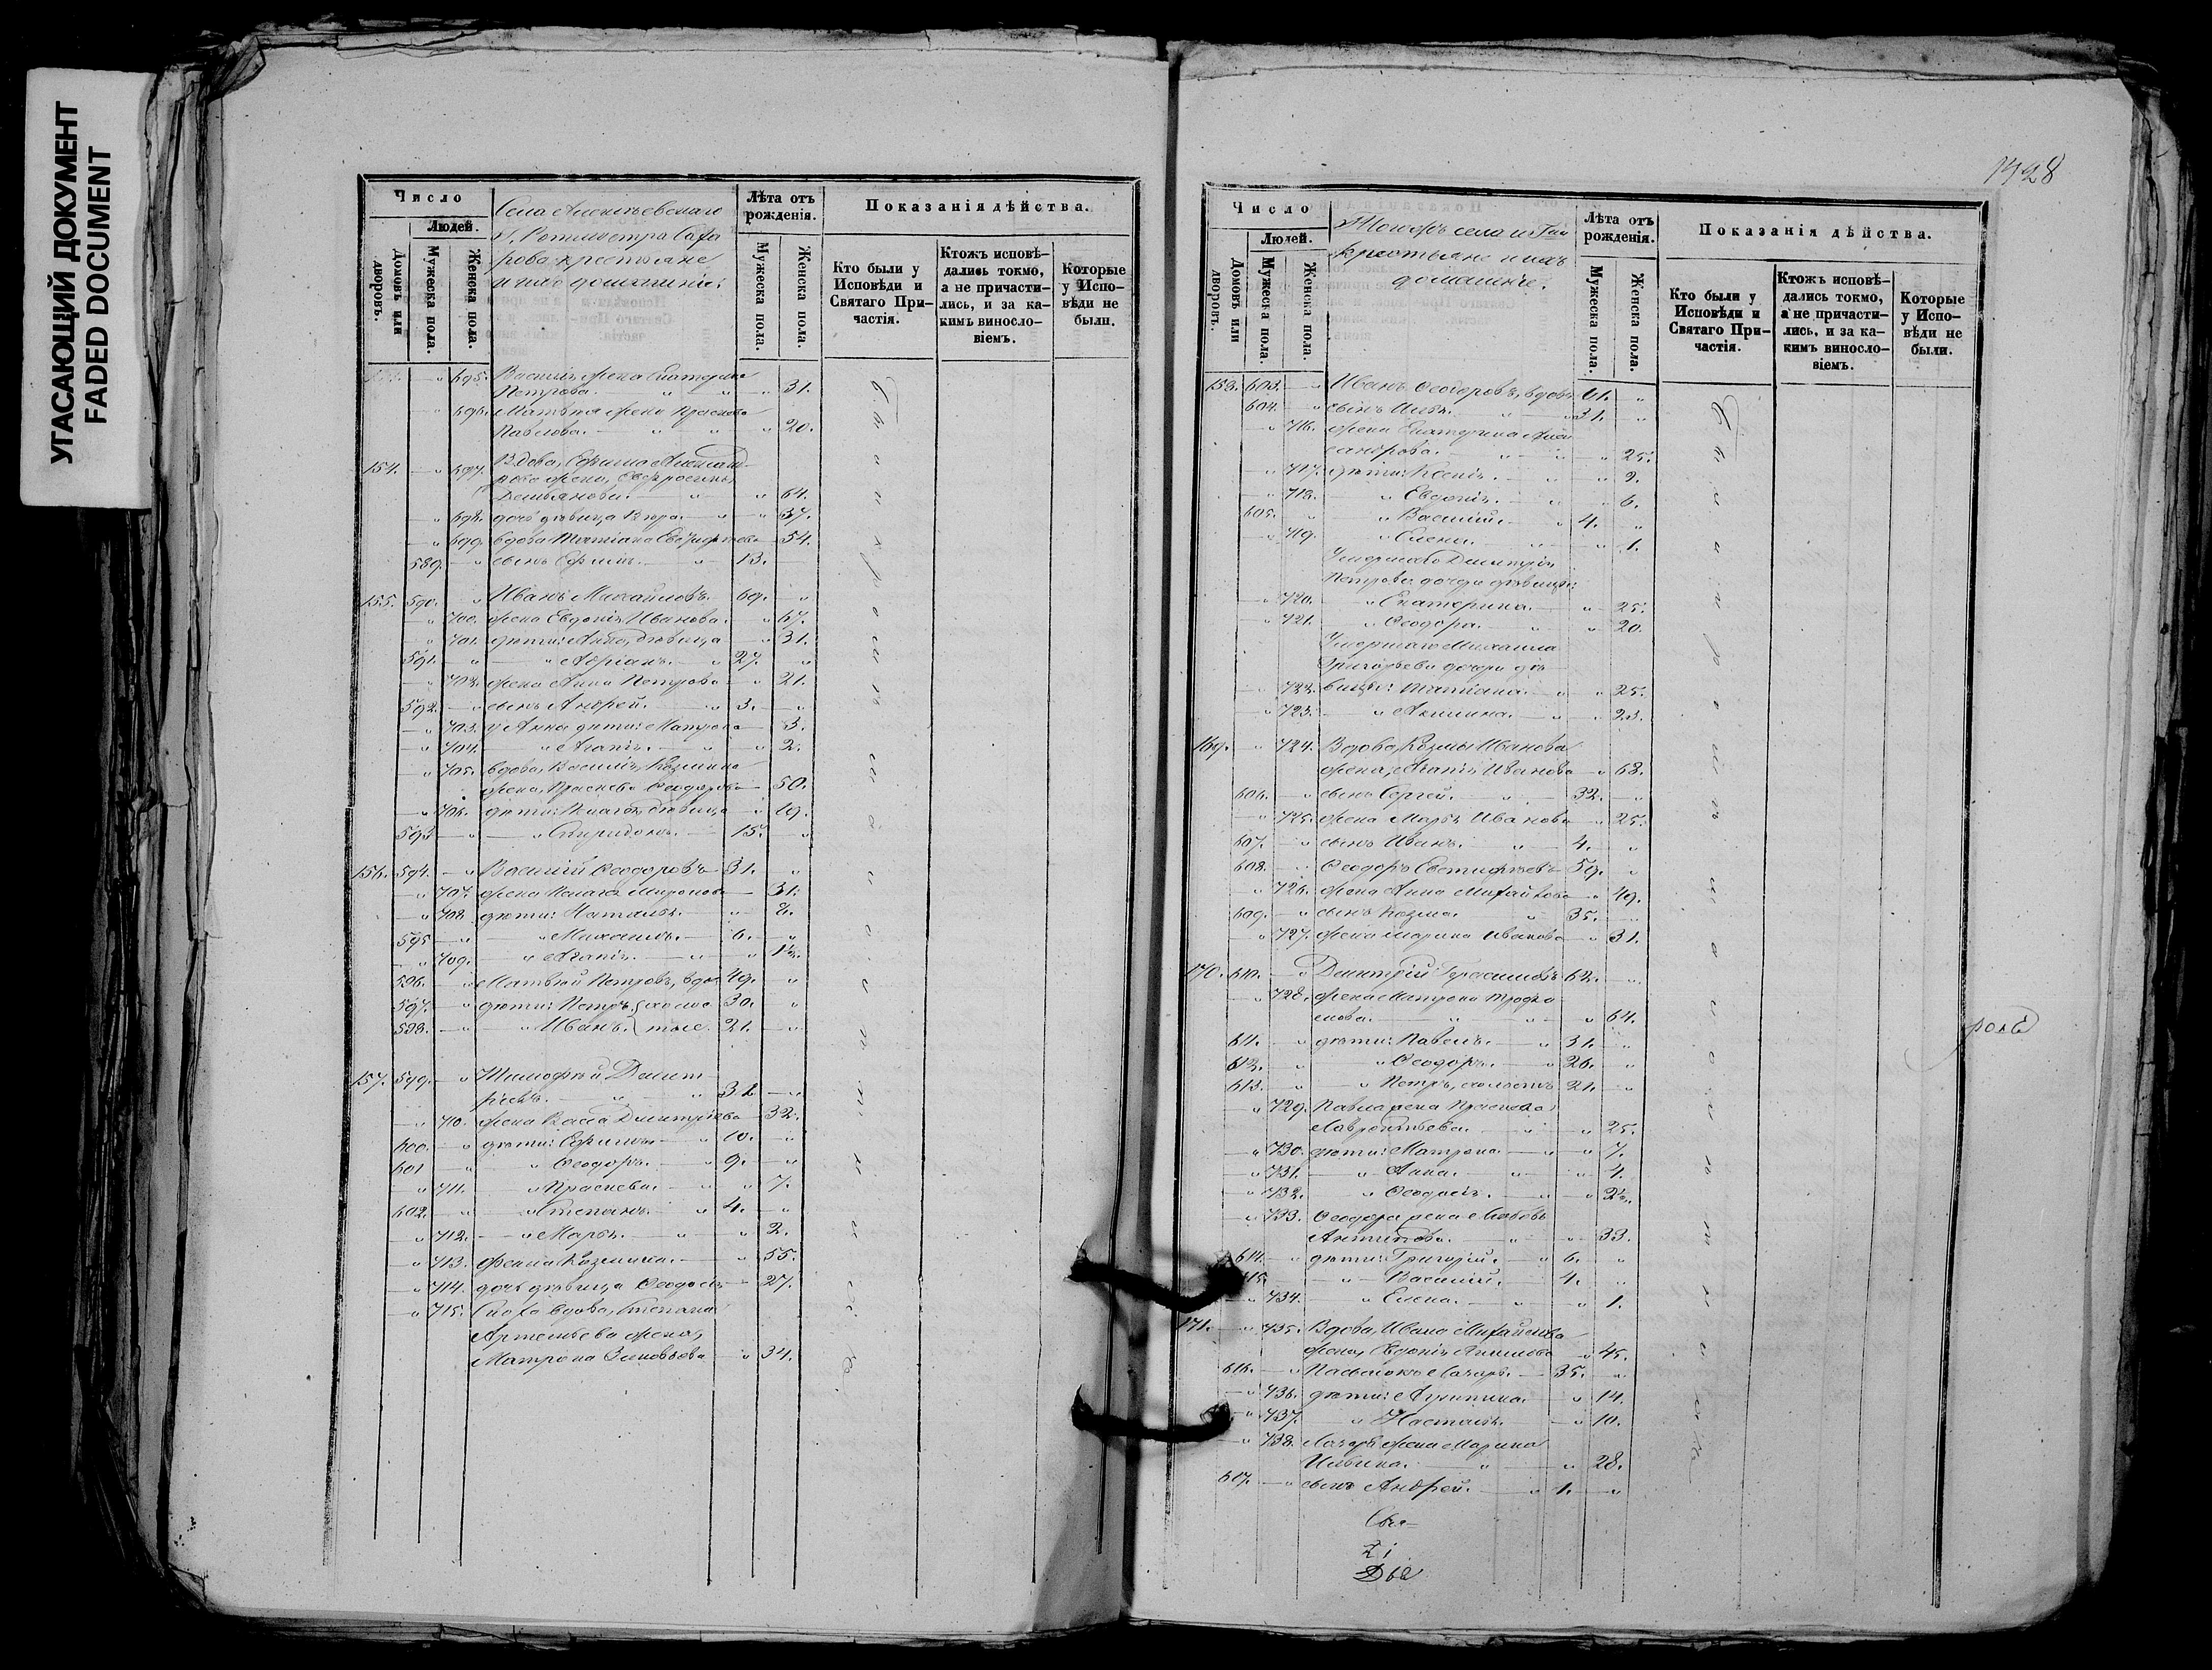 УГАСАЮЩИЙ ДОКУМЕНТ
FADED DOCUMENT
Число
Людей.
Домовъ или дворовъ.
Мужеска пола.
Женска пола.
Села
Г. Ротмистра
крестьяне
и ихъ домашніе:
Лѣта отъ рожденія.
Мужеска пола.
Женска пола.
Показанія дѣйства.
Кто были у Исповѣди и Святаго Причастія.
Ктожъ исповѣдались токмо, а не причастились, и за какимъ винословіемъ.
Которые у Исповѣди не были.
695. жена Екатерина
Петрова. 31.
696. Матвѣя жена Праскева
Павлова. 20.
154. 697. Вдова, Ефима
жена, Евфросинія
Демьянова. 64.
698. дочь дѣвица 37.
699. вдова Татіана 54.
589. сынъ Ефимъ. 13.
155. 590. Иванъ Михайловъ. 69.
700. жена Евдокія Иванова. 67.
701. дѣти: Анна, дѣвица 31.
591. Адріанъ. 27.
702. жена Анна Петрова 21.
592. сынъ Андрей. 3.
703. у Анны дѣти: Матрона 3.
704. Агапія. 2.
705. вдова, Василія Козмина
жена, Праскева Ѳеодорова 50.
706. дѣти: дѣвица 19.
593. Спиридонъ. 15.
156. 594. Василій Ѳеодоровъ 31.
707. жена Миронова 31.
708. дѣти: Наталья. 8.
595. Михаилъ. 6.
709. Агапія. 1½.
596. Матвѣй Петровъ, вдов 49.
597. дѣти: Петръ, холос 30.
598. Иванъ. тые. 21.
157. 599. Тимофей Дмит
ріевъ. 32
710. жена Васса Дмитріева 32.
600. дѣти: Ефимъ 10.
601 Ѳеодоръ. 9.
711. Праскева. 7.
602. Степанъ. 4.
712. Марья. 2.
713. Козмина. 55.
714. дочь дѣвица Ѳеодосія 27.
715. Сноха вдова, Степана
Артемьева жена,
Матрона Зиновьева 34.
Б ы л и и п р о ш л
1428
Число
Людей.
Домовъ или дворовъ.
Мужеска пола.
Женска пола.
Тогожъ села и Г-на
крестьяне и ихъ
домашніе:
Лѣта отъ рожденія.
Мужеска пола.
Женска пола.
Показанія дѣйства.
Кто были у Исповѣди и Святаго Причастія.
Ктожъ исповѣдались токмо, а не причастились, и за какимъ винословіемъ.
Которые у Исповѣди не были.
158. 603. Иванъ Ѳеодоровъ, вдовъ 61.
604. сынъ Илья. 31.
716. жена Екатерина Алек
сандрова. 25.
717. дѣти: Ксенія. 9.
718. Евдокія. 6.
605. Василій. 4.
719. Елена. 1.
Умершаго Димитрія
Петрова дочери дѣвицы:
720. Екатерина. 25.
721. Ѳеодора. 20.
Умершаго Михаила
Григорьева дочери дѣ
722. вицы: Татіана. 25.
723. Акилина. 23.
169. 724. Вдова, Козмы Иванова
жена, Агапія Иванова 68.
606. сынъ Сергей. 32.
725. жена Марья Иванова 25.
607. сынъ Иванъ. 4.
608. Ѳеодоръ 59.
726. жена Анна Михайлова 49.
609. сынъ Козма. 35.
727. жена Марина Иванова 31.
170. 610. Димитрій Герасимовъ 62.
728. жена Матрона Трофи
мова. 64.
611. дѣти: Павелъ. 31.
612. Ѳеодоръ. 26.
613. Петръ, холостъ 21.
729. Павла жена Праскева
Лаврентьева. 25.
730. дѣти: Матрона 7.
731. Анна. 4.
732. Ѳеодосія. 2½.
733. Ѳеодора жена Любовь
Антипова. 33.
614. дѣти: Григорій. 6.
615. Василій. 4.
734. Елена. 1.
171. 735. Вдова, Ивана Михайлова
жена, Евдокія 45.
616. Пасынокъ Лазарь. 35.
736. дѣти: 14.
737. Наталья. 10.
738. Лазаря жена Марина
Ильина. 28.
617. сынъ Андрей. 1.